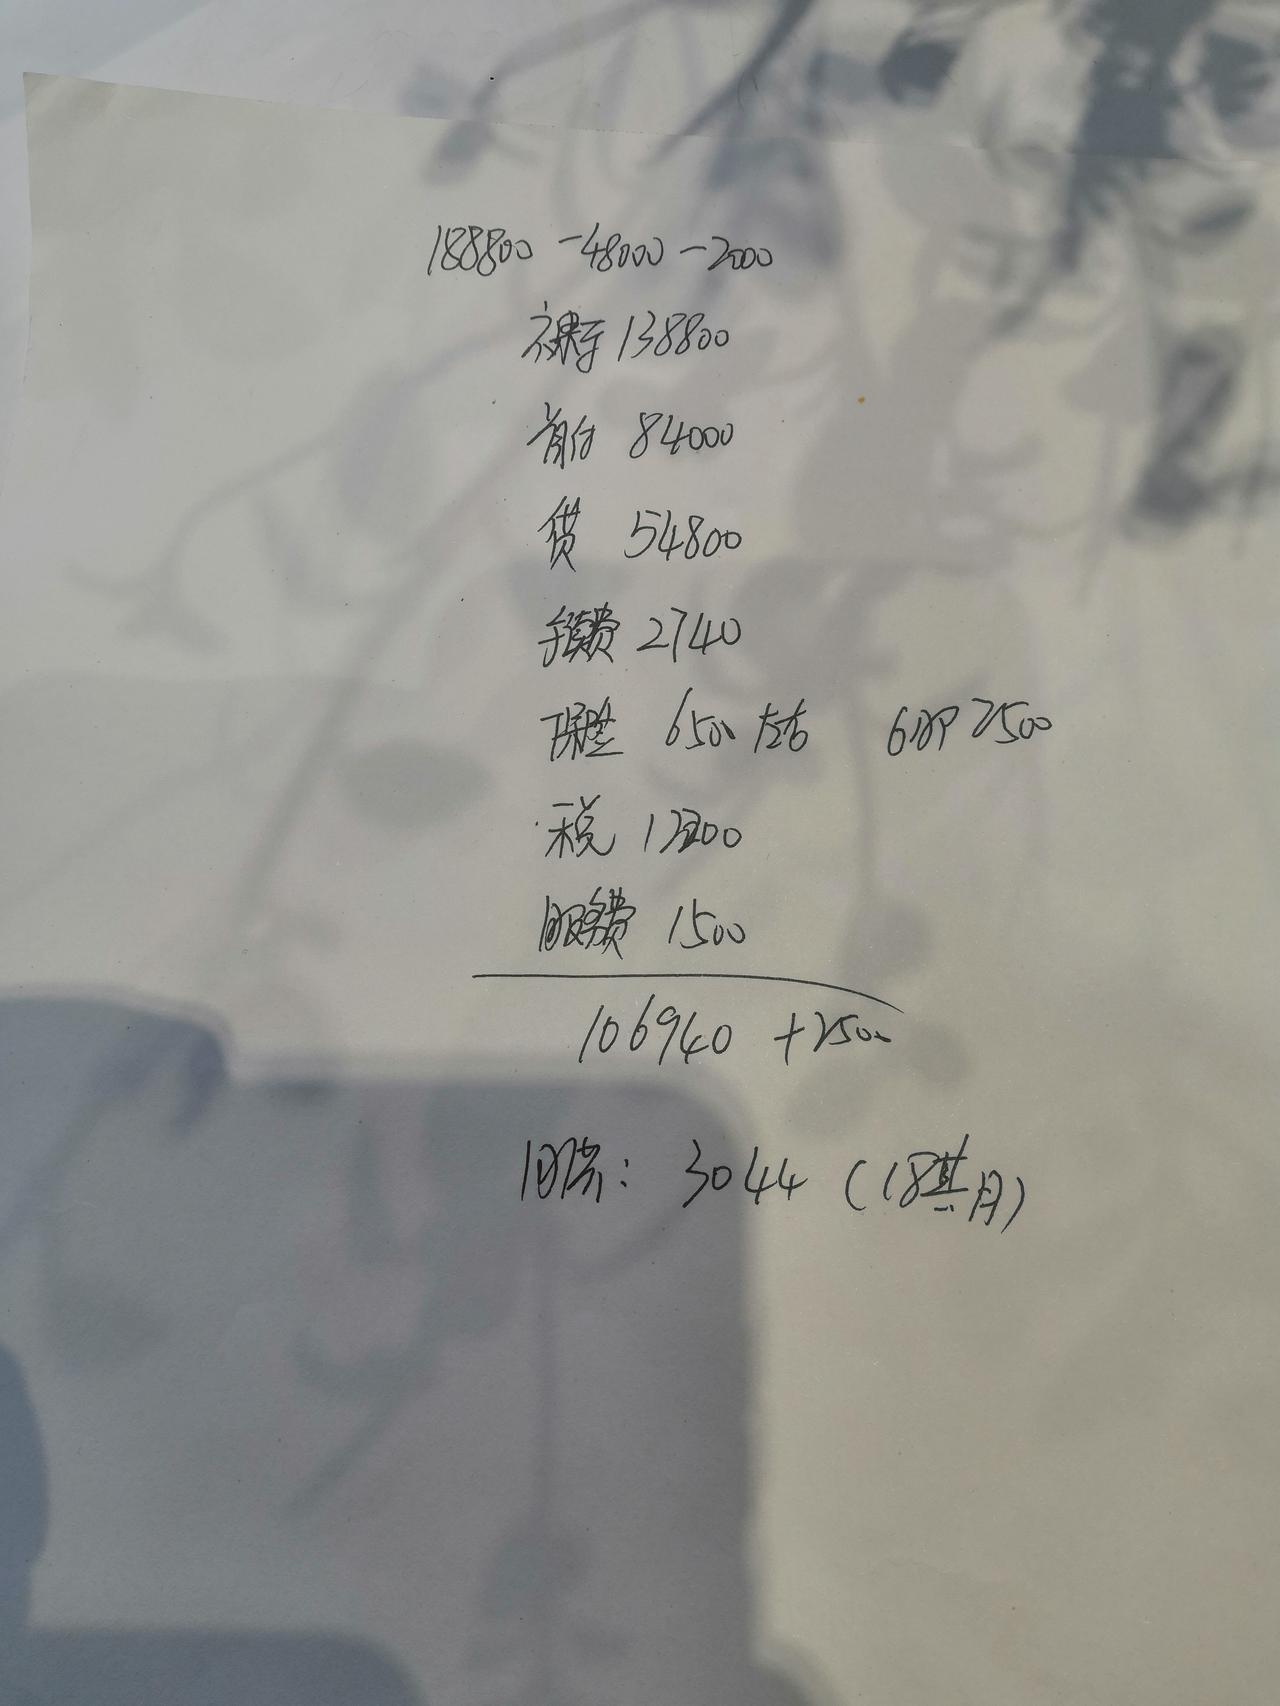 188800 -48000 -2000
裸车 138800
首付 84000
贷 54800
手续费 2740
保险 6500 左右 2500
税 12200
服务费 1500
106940 +2500
月供: 3044 (18其月)